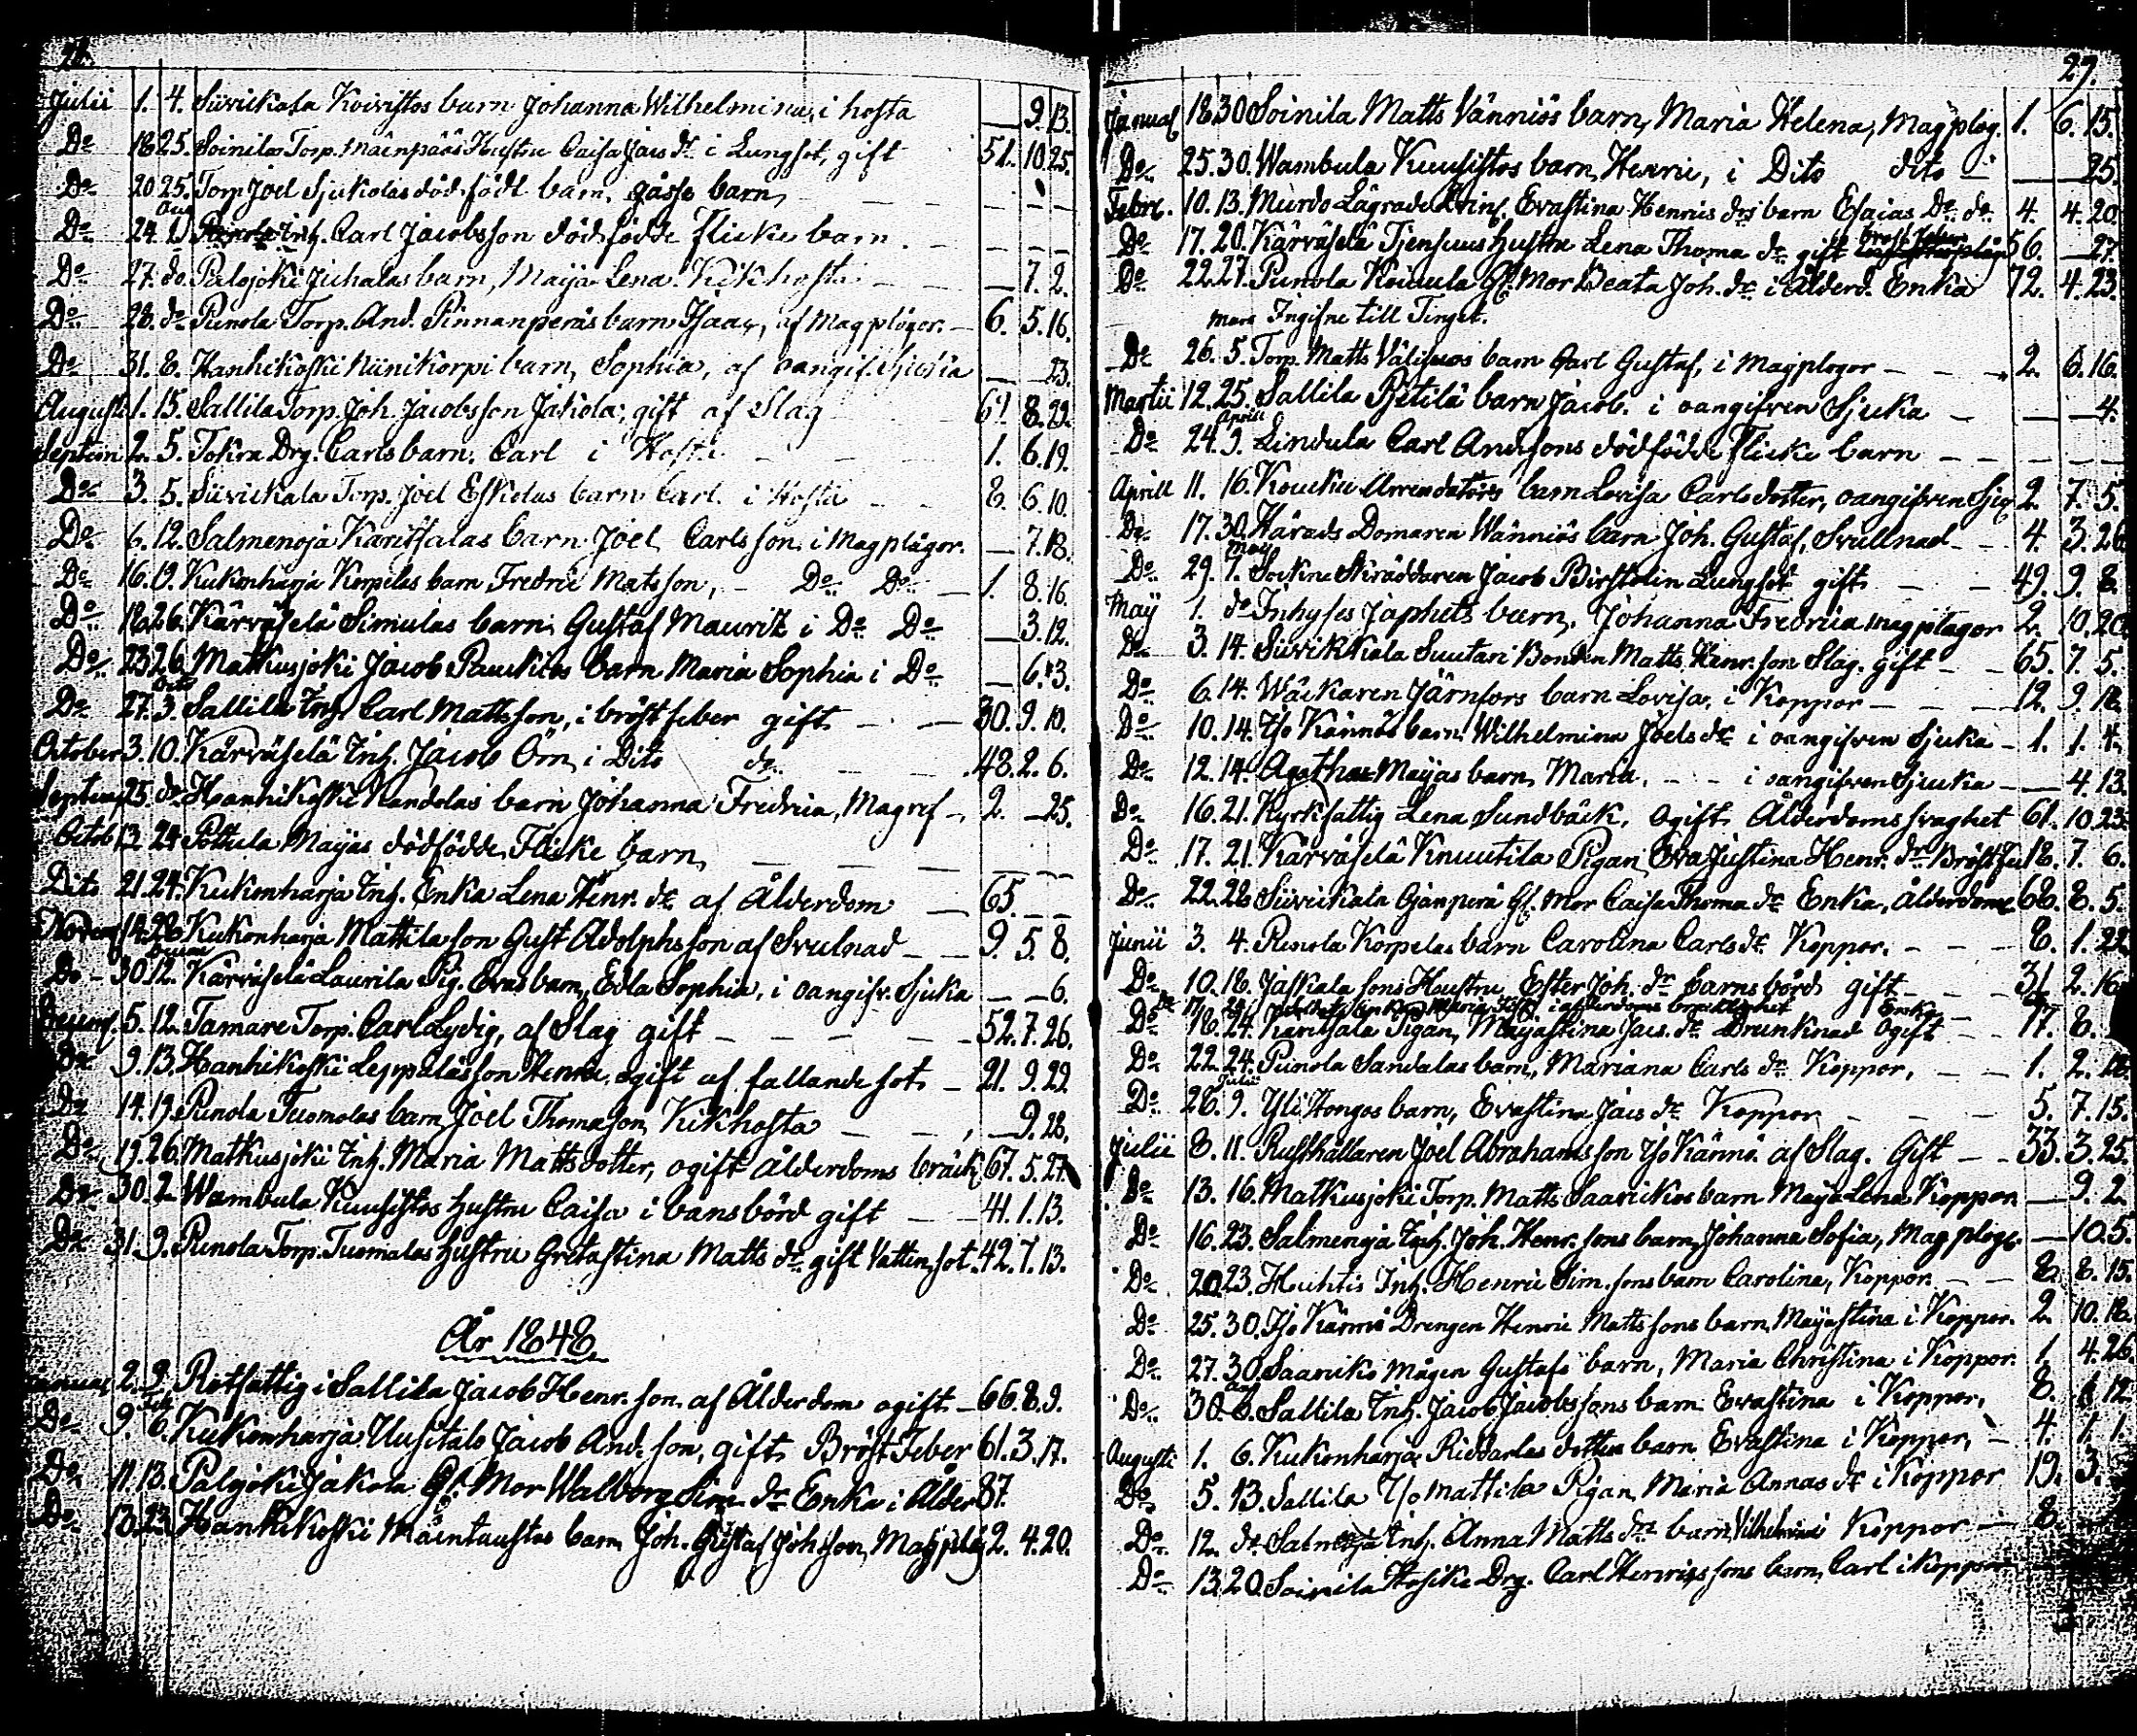 Julii 1. 4. Siivickala Koivistos barn Johanna Wilhelmina, i hosta — 9. 13.
Do 18. 25. Soinila Torp. Mäenpääs Hustru Caisa Jacs dr i Lungsot, gift 51. 10. 25.
Do 20. 25. Torp Joel Sjukolas död född barn, gåsse barn, — — —
Aug
Do 24. 1. Punola Inh. Carl Jacobsson död födde Flicke barn. — — —
Do 27. do. Palojoki Juhalas barn, Maija Lena. Kikhosta — — 7. 2.
Do 28. do Punola Torp. And. Rinnanperäs barn Isaac, af Magplågor. — 6. 5. 16.
Do 31. 8. Hanhikoski Niinikorpi barn, Sophia, af oangif. Sjuka — — 23.
Augusti 1. 15. Sallila Torp. Joh. Jacobsson Jakola, gift af Slag 61. 8. 29.
Septem 2. 5. Tokra Drg. Carls barn. Carl i Hosta — 1. 6. 19.
Do 3. 5. Siivickala Torp. Joel Eskolas barn Carl. i Hosta 8. 6. 10.
Do 6. 12. Salmenoja Karitsalas barn Joel Carls son i Magplågor. — 7. 18.
Do 16. 19. Kukonharja Korpelas barn Fredric Matsson, — Do Do — 1. 8. 16.
Do 18. 26. Kärväselä Simulas barn Gustaf Mauritz i Do Do — 3. 12.
Do 23. 26. Matkusjoki Jacob Pauckios barn Maria Sophia i Do — 6. 3.
Octo
Do 27. 3. Sallila Inh. Carl Mattsson, i bröst feber gift — — 30. 9. 10.
October 3. 10. Kärväselä Inh. Jacob Öm, i Dito do. — 48. 2. 6.
Septem 25. do Hanhikoski Kandolas barn Johanna Fredrica, Magref — 2. — 25.
Octob 13. 24. Pottula Maijas dödfödde Flicke barn, — — —
Dito 21. 24. Kukonharja Inh. Enka Lena Henr. dr af Ålderdom — 65. — —
Novem 14. 28. Kukonharja Mattila son Gust Adolphsson af Svulnad — — 9. 5. 8.
Do — 30. 12. Kärväselä Laurila Pig. Evas barn, Edla Sophia, i oangifv. Sjuka — — 6.
5. 12. Tamare Torp. Carl Lydig, af Slag gift — — — 52. 7. 26.
Do 9. 13. Hanhikoski Leppäläs son Henric, ogift af fallande sot. — 21. 9. 29
Do 14. 19. Punola Tuomolas barn Joel Thomasson, Kikhosta — — , — 9. 28.
Do 19. 26. Matkusjoki Inh. Maria Matts dotter, ogift ålderdoms bräck 67. 5. 27.
Do 30. 2. Wambula Kuusistos hustru Caisa i bansbörd gift — — 41. 1. 13.
Do 31. 9. Punola Torp. Tuomalas hustru Gretastina Matts dr gift Vattensot. 42. 7. 13.
År 1848.
2. 9. Rotfattig i Sallila Jacob Henr. son. af Ålderdom ogift — 66. 8. 9.
Feb
Do 9. 6. Kukonharja Uusitalo Jacob And. son, gift, Bröst Feber 61. 3. 17.
Do 11. 13. Palojoki Jakola Gf. Mor Walborg Sim. dr Enka i Ålder 87.
Do 18. 23. Hanhikoski Mäentaustas barn Joh. Gustaf Johsson, Magplåg 2. 4. 20.
29.
Januar 18. 30 Soinila Matts Vänniös barn, Maria Helena, Magplog. 1. 6. 15.
Do 25. 30. Wambula Kuusistos barn, Henric, i Dito dito — — — 25.
Febr. 10. 13. Murdo Evastina Henrics drs barn Esaias Do do. 4. 4. 20.
Do 17. 20. Kärväselä Hustru Lena Thoma dr gift bröst feber 56. — 27.
Do 22. 27. Punola Gf. Mor Beata Joh. dr i Ålderd. Enka 72. 4. 23.
Mars Ingifne till Tinget.
Do 26. 5. Torp. Matts barn Carl Gustaf, i Magplogor — — — 2. 6. 16.
Martii 12. 25. Sallila Pjetilä barn Jacob. i oangifven Sjuka — — — 4.
Aprill
Do 24. 9. Lindula Carl Andssons dödfödde Flicke barn — — — —
Aprill 11. 16. Arrendatores barn Lovisa Carlsdotter, oangifven Sjuk 2. 7. 5.
Do 17. 30. Härads Domaren Wänniös barn Joh. Gustaf, Svullnad — 4. 3. 26
May
Do 29. 7. Sockne Skräddaren Jacob Birstolin Lungsot gift — — 49. 9. 8.
Maij 1. do Inhyses Japhets barn, Johanna Fredrica magplågor 2. 10. 20.
Do 3. 14. Siivikkala Suutari Bonden Matts Henr. son Slag. gift — — 65. 7. 5.
Do 6. 14. Järnfors barn Lovisa, i Koppor — — — 12. 9. 18.
Do 10. 14. Iso Kännös barn Wilhelmina Joels dr i oangifven Sjuka — 1. 1. 4.
Do 12. 14. Agathas Maijas barn Maria, — — i oangifven Sjuka — — 4. 13.
Do 16. 21. Kyrkfattig Lena Sundbäck, ogift, Ålderdoms svaghet 61. 10. 23.
Do 17. 21. Kärväselä Knuutila Pigan Eva Justina Henr. dr Bröst Fe 18. 7. 6.
Do 22. 28. Siivickala Ojanperä Gf. Mor Caisa Thoma dr Enka, Ålderdom 68. 8. 5.
Junii 3. 4. Punola Korpelas barn Carolina Carls dr Koppor. — — — 8. 1. 22
Do 10. 18. Jaskala sons Hustru, Ester Joh. dr barnsbörd gift — — — 31. 2. 16
Do 17. 24. Enka Maria i ålderdoms bräcklighet Enka —
Do 18. 24. Karitsala Pigan, Majastina Jacs. dr Drunknad Ogift — — 17. 8.
Do 22. 24. Punola Sandalas barn, Mariana Carls dr Koppor, — — 1. 2. 18.
Julii
Do 26. 9. Yli Hongos barn, Evastina Jacs dr Koppor — — — 5. 7. 15.
Julii 8. 11. Rusthållaren Joel Abrahams son Iso Kännö. af Slag. Gift — — 33. 3. 25.
Do 13. 16. Matkusjoki Torp. Matts Saarickos barn Maija Lena Koppor — 9. 2.
Do 16. 23. Salmenoja Inh. Joh. Henr. sons barn, Johanna Sofia, Magplogr. — 10. 5.
Do 20. 23. Huhtis Inh. Henric Sim. sons barn Carolina, Koppor. — — 8. 8. 15.
Do 25. 30. Iso Kännö Drengen Henric Matts sons barn, Majastina i Koppor. 2. 10. 18.
Do 27. 30. Saariko Mågen Gustafs barn, Maria Christina i Koppor. 1. 4. 26.
Do 30. 6. Sallila Inh. Jacob Jacobssons barn Evastina i Koppor, 8. 1. 12.
Augusti 1. 6. Kukonharja Riddarlas dotter barn Evastina i Koppor, — 4. 1. 1.
Do 5. 13. Sallila I/o Mattila Pigan, Maria Annas dr i Koppor 19. 3.
Do 12. do Salmenoja Inh. Anna Matts drs barn Vilhelmina i Koppor — 8. —
Do 13. 20. Soinila Hosike Drg. Carl Henrics sons barn, Carl i Koppor